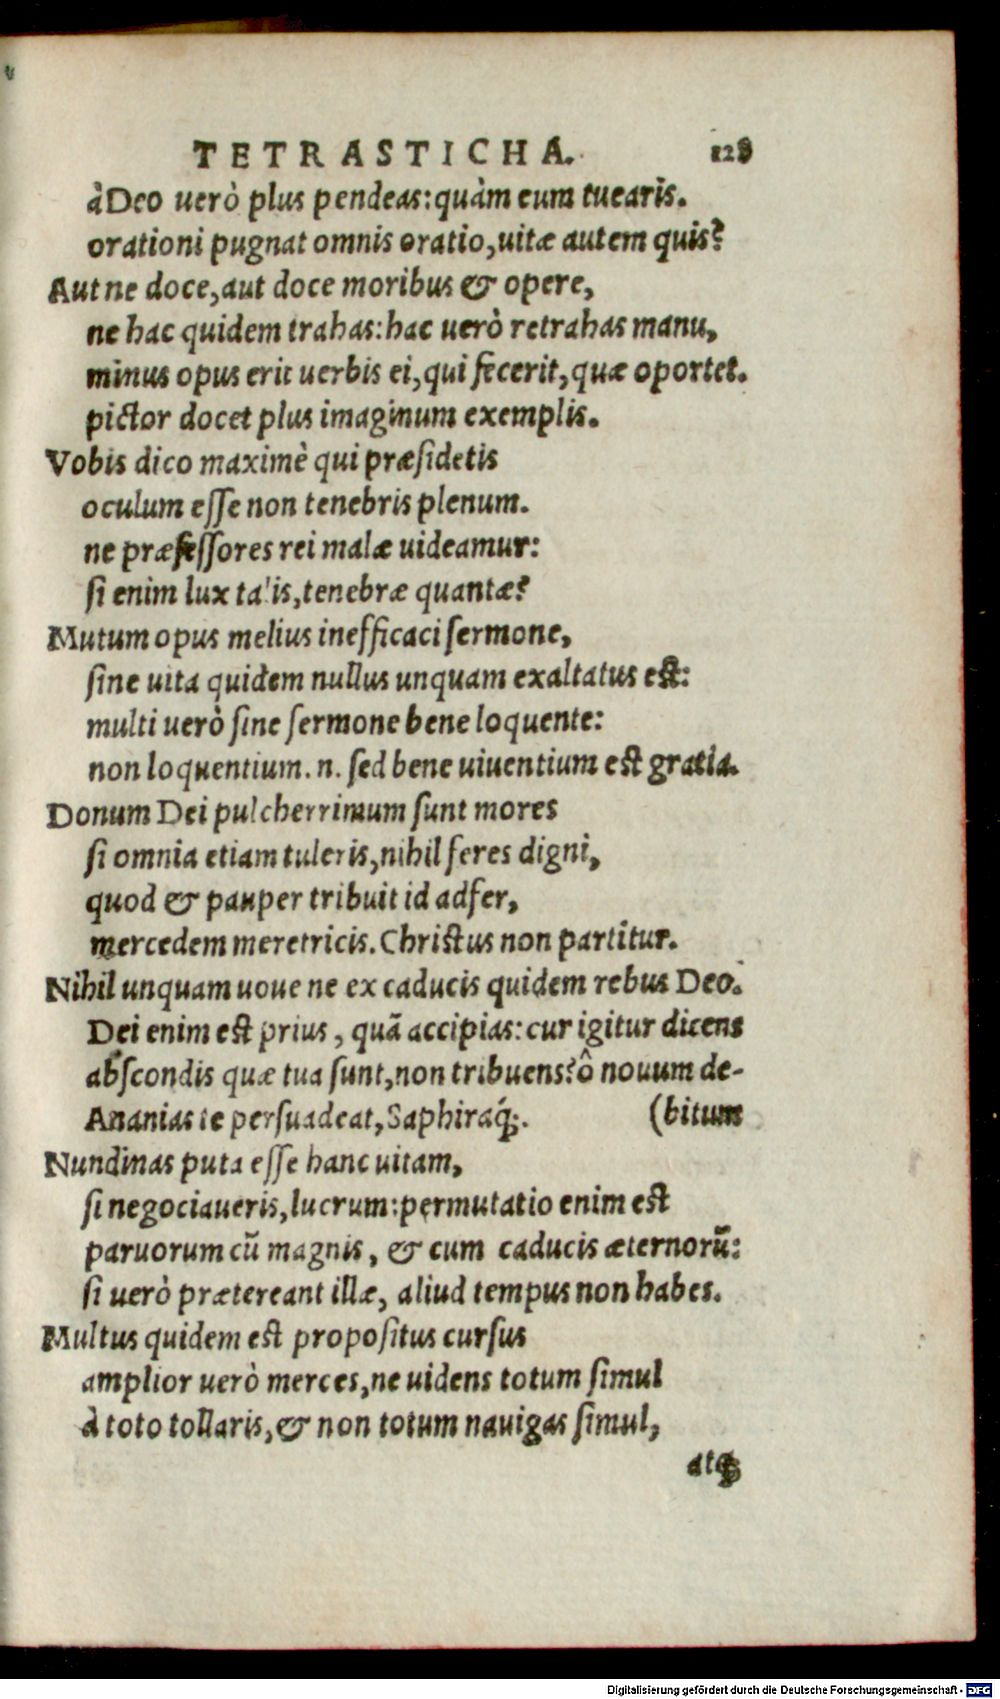 TETRASTICHA. 128
à Deo uerò plus pendeas: quàm eum tuearis.
orationi pugnat omnis oratio, uitæ autem quis?
Aut ne doce, aut doce moribus & opere,
ne hac quidem trahas: hac uerò retrahas manu,
minus opus erit uerbis ei, qui fecerit, quæ oportet.
pictor docet plus imaginum exemplis.
Vobis dico maximè qui præſidetis
oculum eſſe non tenebris plenum.
ne præfeſſores rei malæ uideamur:
ſi enim lux talis, tenebræ quantæ?
Mutum opus melius inefficaci ſermone,
ſine uita quidem nullus unquam exaltatus eſt:
multi uerò ſine ſermone bene loquente:
non loquentium .n. ſed bene uiuentium eſt gratia.
Donum Dei pulcherrimum ſunt mores
ſi omnia etiam tuleris, nihil feres digni,
quod & pauper tribuit id adfer,
mercedem meretricis. Chriſtus non partitur.
Nihil unquam uoue ne ex caducis quidem rebus Deo.
Dei enim eſt prius, quã accipias: cur igitur dicens
abſcondis quæ tua ſunt, non tribuens? ô nouum de-
Ananias te perſuadeat, Saphiraq́;. (bitum
Nundinas puta eſſe hanc uitam,
ſi negociaueris, lucrum: permutatio enim eſt
paruorum cũ magnis, & cum caducis æternorũ:
ſi uerò prætereant illæ, aliud tempus non habes.
Multus quidem eſt propoſitus curſus
amplior uerò merces, ne uidens totum ſimul
à toto tollaris, & non totum nauigas ſimul,
atq;
Digitalisierung gefördert durch die Deutsche Forschungsgemeinschaft - DFG